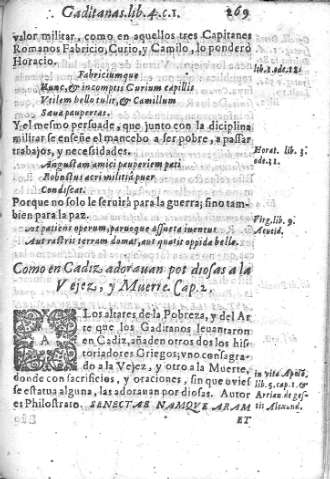 Gaditanas. lib. 4. c. 1. 269
valor militar, como en aquellos tres Capitanes
Romanos Fabricio, Curio, y Camilo, lo ponderò
Horacio.
lib. 1. ode. 12.
Fabriciumque
Hunc, & incomptis Curium capillis
Vtilem bello tulit, & Camillum
Saua paupertas.
Y el mesmo persuade, que junto con la diciplina
militar se enseñe el mancebo a ser pobre, a passar
trabajos, y necessidades.
Horat. lib. 3.
ode. 11.
Angustam amici pauperiem pati
Robustus acri militia puer
Condiscat.
Porque no solo le seruirà para la guerra; sino tam
bien para la paz.
Virg. lib. 9.
Aeneid.
Aut patiens operum, paruoque assueta iuuentus
Aut rastris terram domat, aut quatit oppida bello.
Como en Cadiz adorauan por diosas a la
Vejez, y Muerte. Cap. 2.
A Los altares de la Pobreza, y del Ar
te que los Gaditanos leuantaron
en Cadiz, añaden otros dos los his
toriadores Griegos; vno consagra-
do a la Vejez, y otro a la Muerte,
donde con sacrificios, y oraciones, sin que uvies
se estatua alguna, las adorauan por diosas. Autor
es Philostrato. SENECTAE NAMQVE ARAM
in vita Apolo.
lib. 5. cap. 1. &
Arrian. de ges-
tis Alexand.
ET